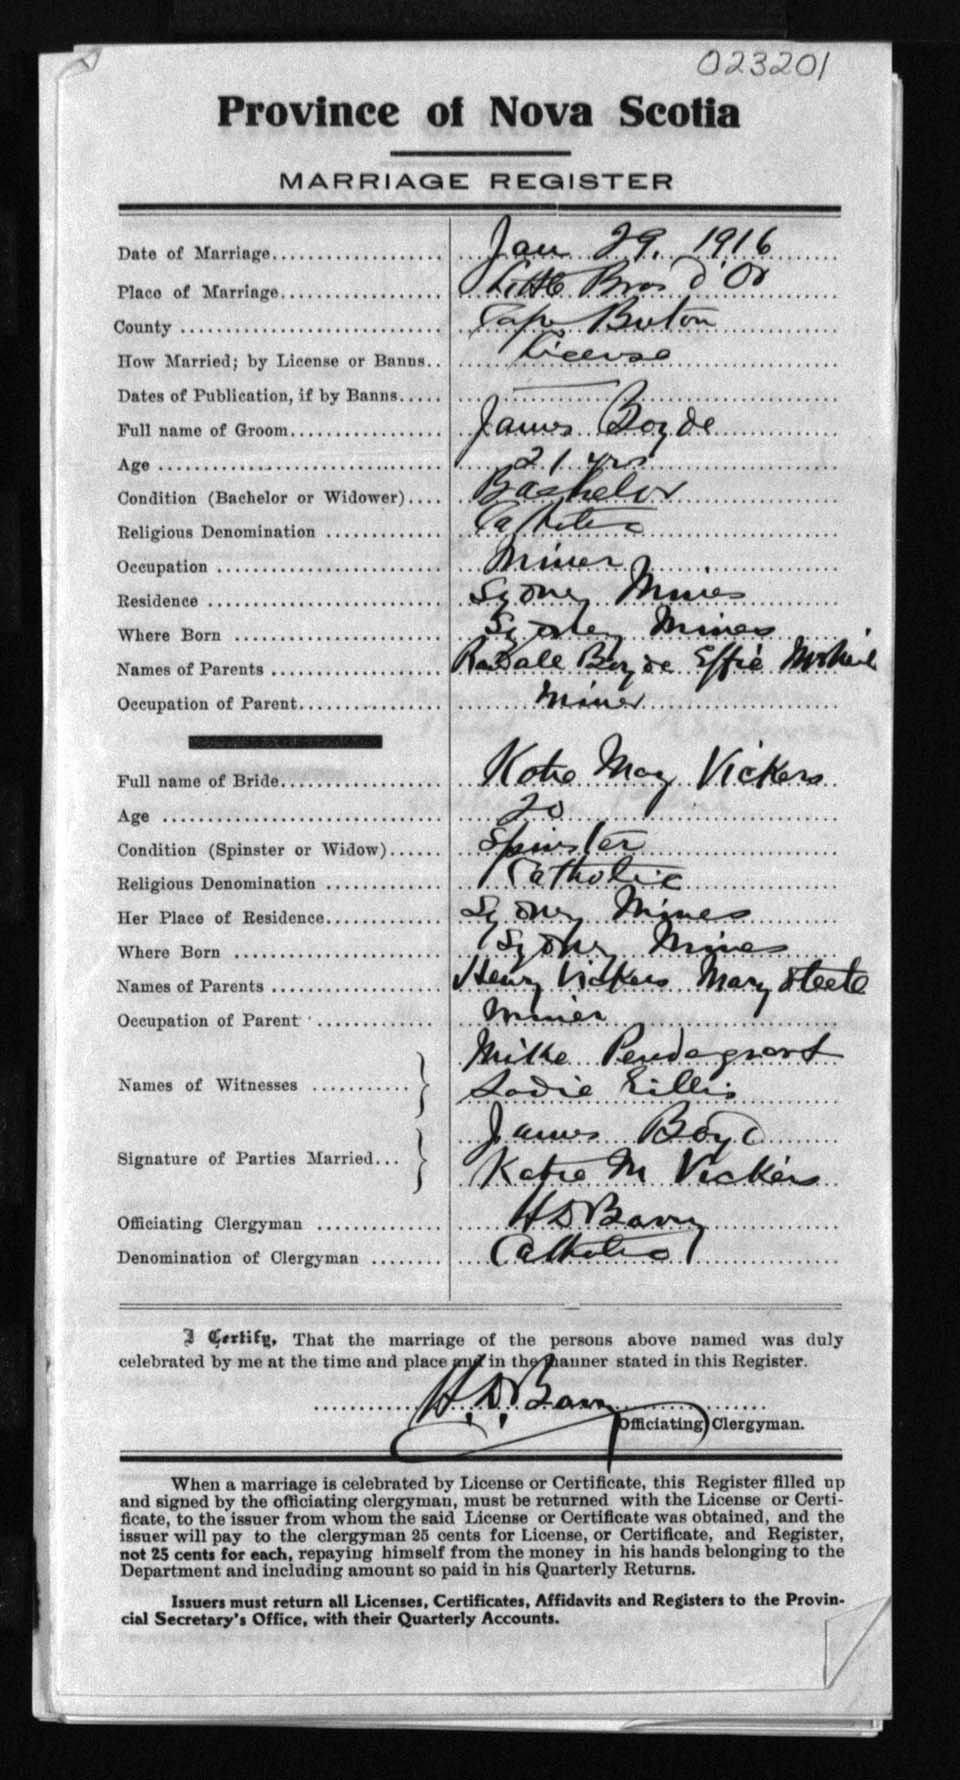 023201
Province of Nova Scotia
MARRIAGE REGISTER
Date of Marriage Jan 29. 1916
Place of Marriage Little Bras d'Or
County Cape Breton
How Married; by License or Banns License
Dates of Publication, if by Banns —
Full name of Groom James Boyde
Age 21 yrs
Condition (Bachelor or Widower) Bachelor
Religious Denomination Catholic
Occupation Miner
Residence Sydney Mines
Where Born Sydney Mines
Names of Parents Boyde Effie McNeil
Occupation of Parent Miner
Full name of Bride Katie May Vickers
Age 20
Condition (Spinster or Widow) Spinster
Religious Denomination Catholic
Her Place of Residence Sydney Mines
Where Born Sydney Mines
Names of Parents Henry Vickers Mary Steele
Occupation of Parent Miner
Names of Witnesses Mike
Sadie
Signature of Parties Married James Boyd
Katie M Vickers
Officiating Clergyman H D Barry
Denomination of Clergyman Catholic
I Certify, That the marriage of the persons above named was duly
celebrated by me at the time and place and in the manner stated in this Register.
H. D. Barry
Officiating Clergyman.
When a marriage is celebrated by License or Certificate, this Register filled up
and signed by the officiating clergyman, must be returned with the License or Certi-
ficate, to the issuer from whom the said License or Certificate was obtained, and the
issuer will pay to the clergyman 25 cents for License, or Certificate, and Register,
not 25 cents for each, repaying himself from the money in his hands belonging to the
Department and including amount so paid in his Quarterly Returns.
Issuers must return all Licenses, Certificates, Affidavits and Registers to the Provin-
cial Secretary's Office, with their Quarterly Accounts.